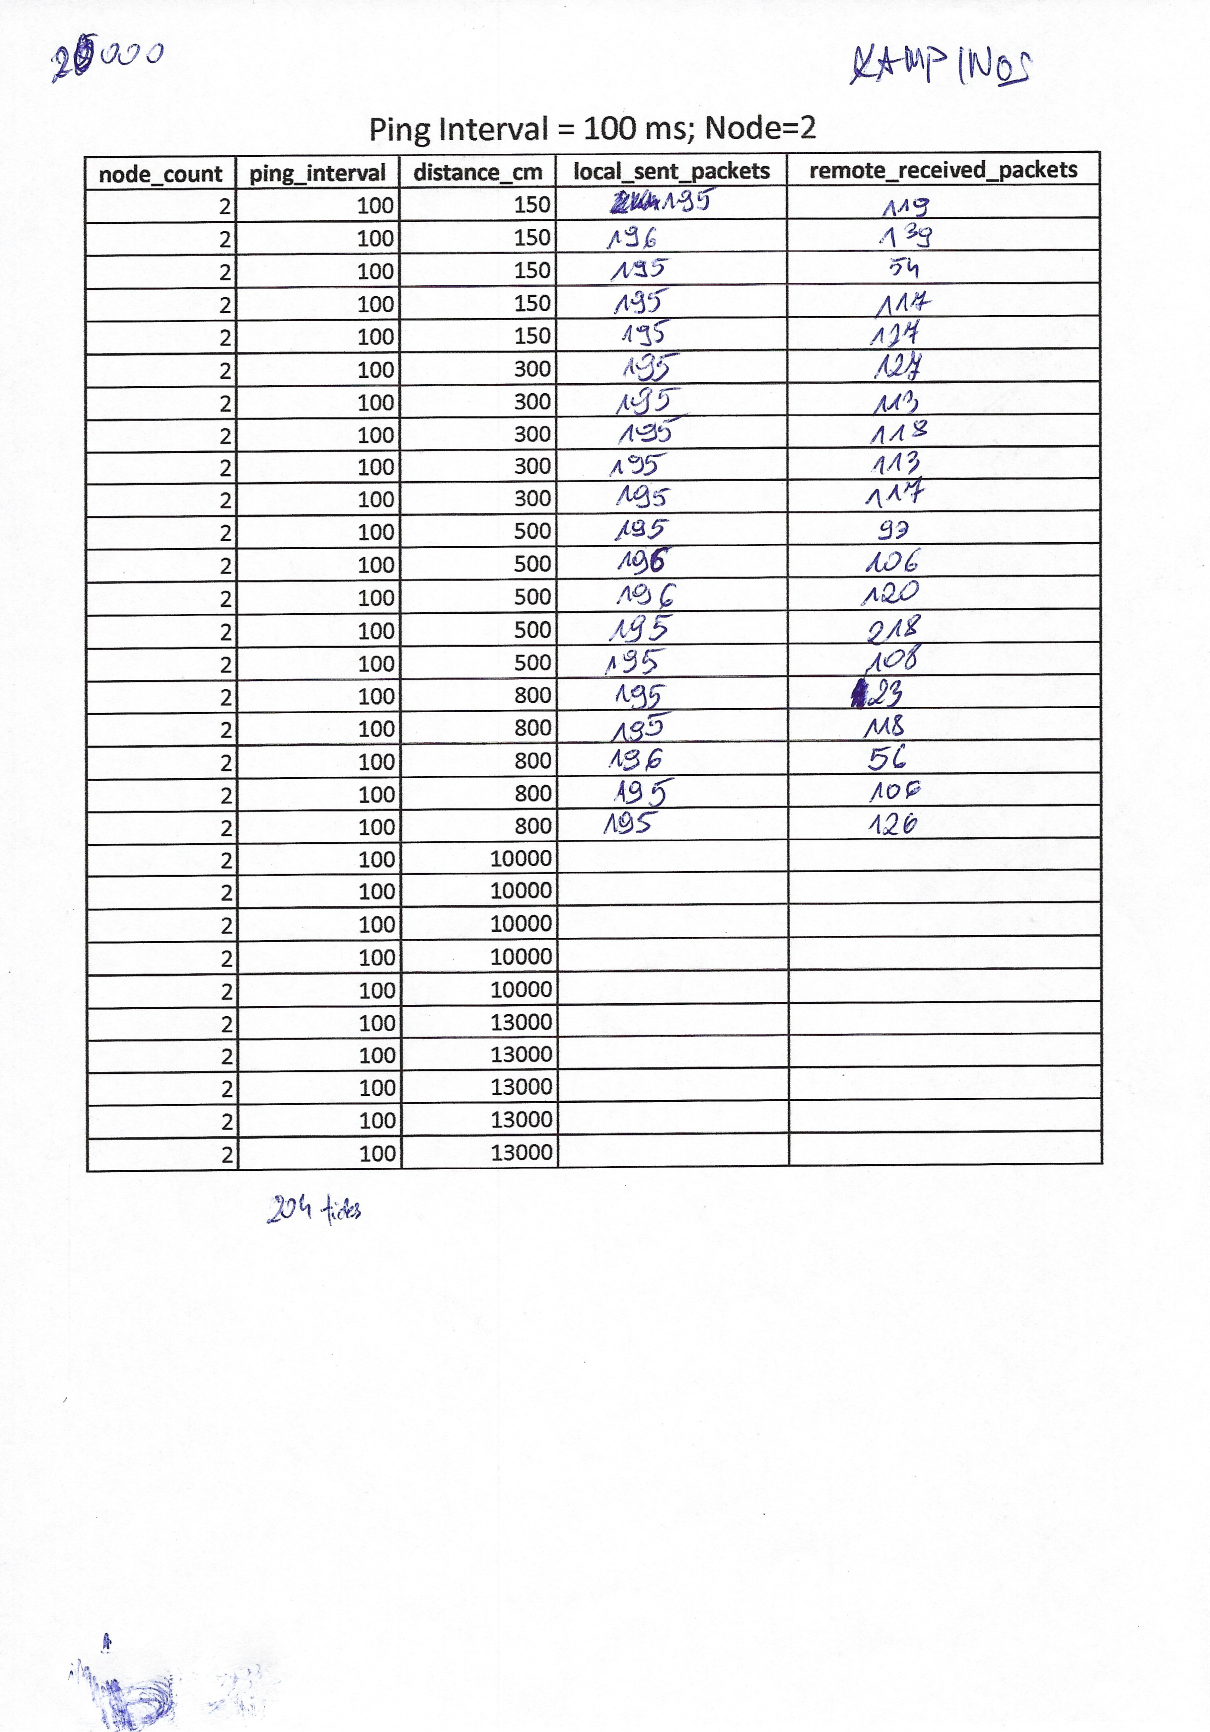 20000 KAMPINOS
Ping Interval = 100 ms; Node=2
node_count ping_interval distance_cm local_sent_packets remote_received_packets
2 100 150 195 119
2 100 150 196 139
2 100 150 195 54
2 100 150 195 117
2 100 150 195 127
2 100 300 195 127
2 100 300 195 113
2 100 300 195 118
2 100 300 195 113
2 100 300 195 117
2 100 500 195
2 100 500 196 106
2 100 500 196 120
2 100 500 195 218
2 100 500 195 108
2 100 800 195 23
2 100 800 195 118
2 100 800 196 56
2 100 800 195 106
2 100 800 195 126
2 100 10000
2 100 10000
2 100 10000
2 100 10000
2 100 10000
2 100 13000
2 100 13000
2 100 13000
2 100 13000
2 100 13000
204 ticks